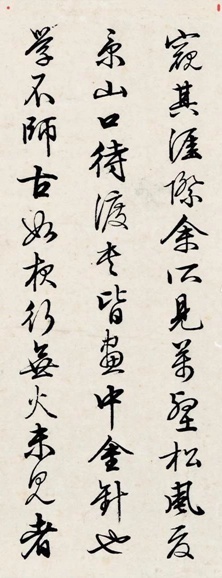 窺其涯際余所見萬壑松風夏
景山口待渡卷皆畫中金針也
学不師古如夜行無火未見者